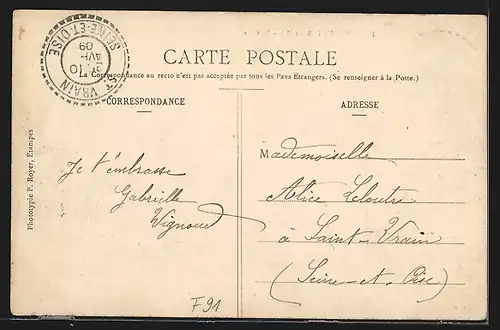 CARTE POSTALE
La Correspondance au recto n'est pas acceptée par tous les Pays Étrangers. (Se renseigner à la Poste.)
CORRESPONDANCE
ADRESSE
ST VRAIN
SEINE-ET-OISE
10
AVR
09
Je t'embrasse
Gabrielle
Vignoud
Mademoiselle
Alice Cloutre
à Saint-Vrain
(Seine-et-Oise)
Phototypie P. Royer, Etampes
F91